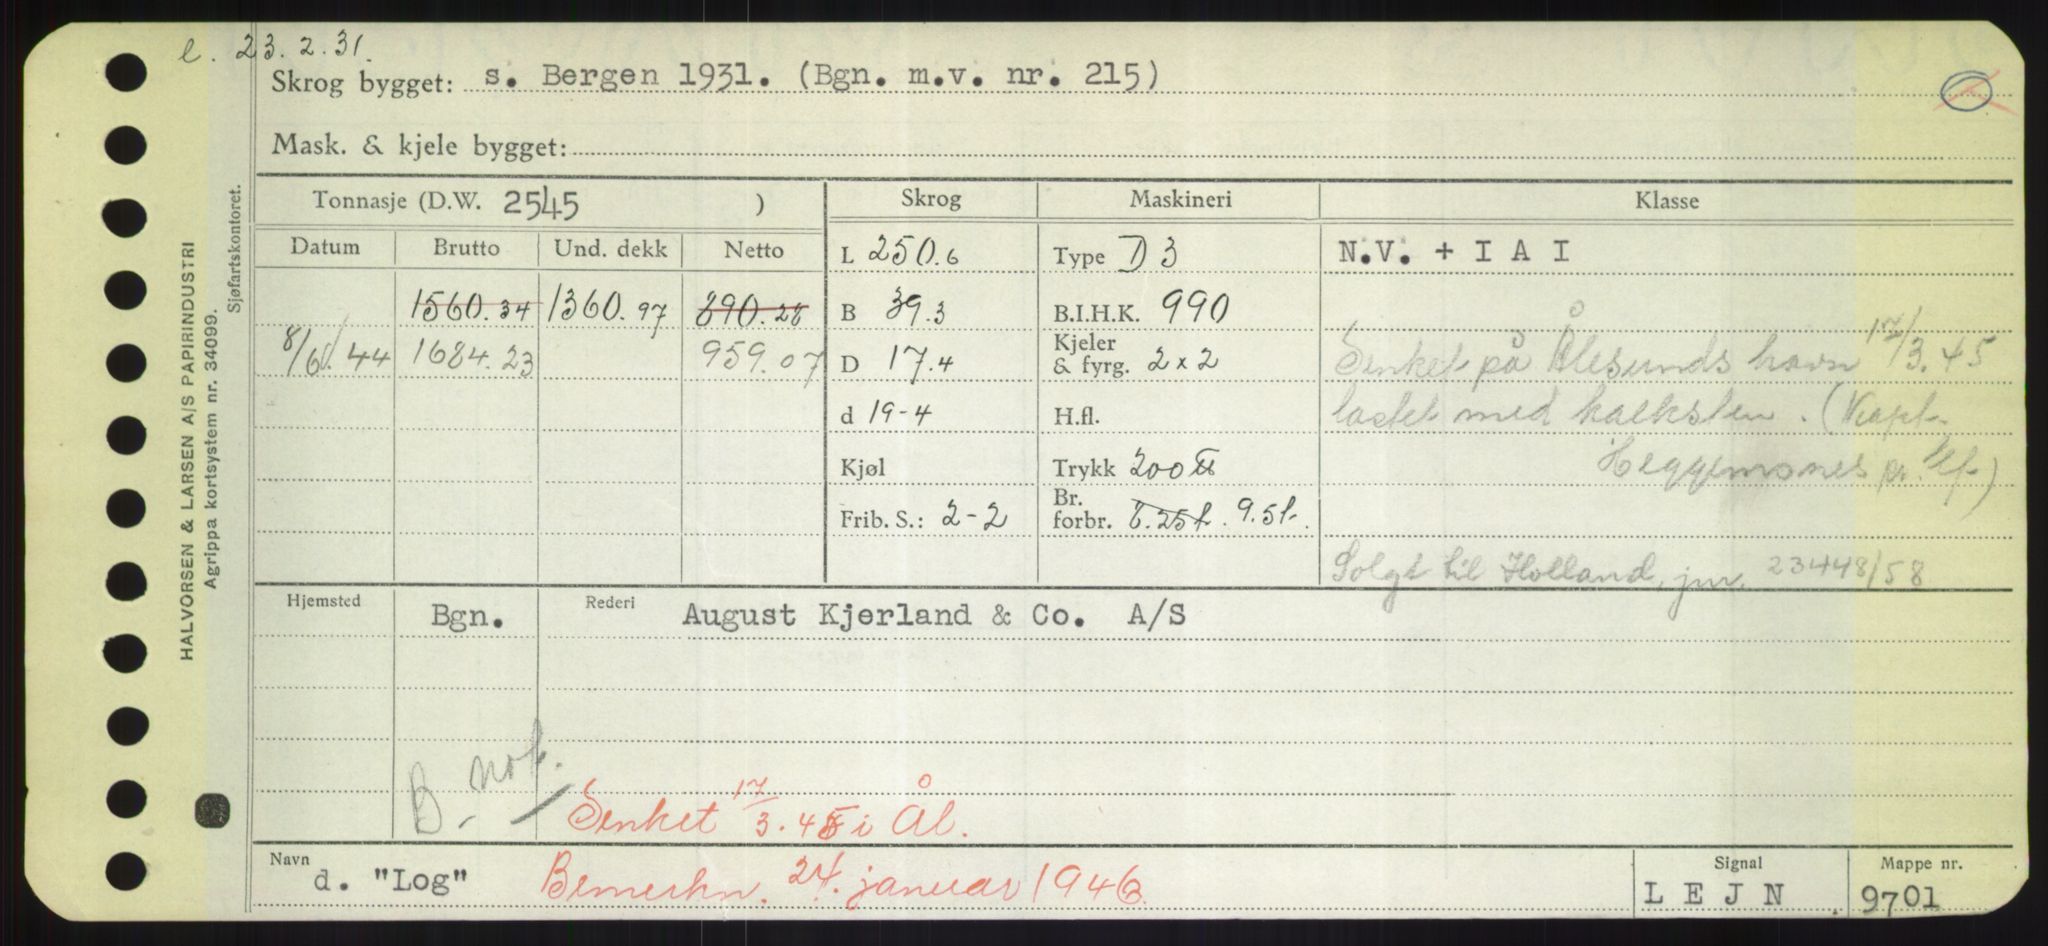 l. 23.2.31.
Skrog bygget: s. Bergen 1931. (Bgn. m.v. nr. 215)
Mask. & kjele bygget:
HALVORSEN & LARSEN A/S PAPIRINDUSTRI
Agrippa kortsystem nr. 34099.
Sjøfartskontoret.
Tonnasje (D.W. 2545 ) Skrog Maskineri Klasse
Datum Brutto Und. dekk Netto L 250.6 Type D 3 N.V. + I A I
1560.34 1360.97 890.28 B 39.3 B.I.H.K. 990
8/6.44 1684.23 959.07 D 17.4 Kjeler & fyrg. 2x2 Senket på Ålesunds havn 17/3.45
d 19-4 H.fl. lastet med kalksten. (Kapt.
Kjøl Trykk 200 ℔ Heggemsnes pr. tlf)
Frib. S.: 2-2 Br. forbr. 6.25t. 9.5t.
Solgt til Holland, jnr. 23448/58
Hjemsted Bgn. Rederi August Kjerland & Co. A/S
B. not.
Senket 17/3.45 i Ål.
Navn d. "Log" Bemerkn. 24. januar 1946 Signal L E J N Mappe nr. 9701